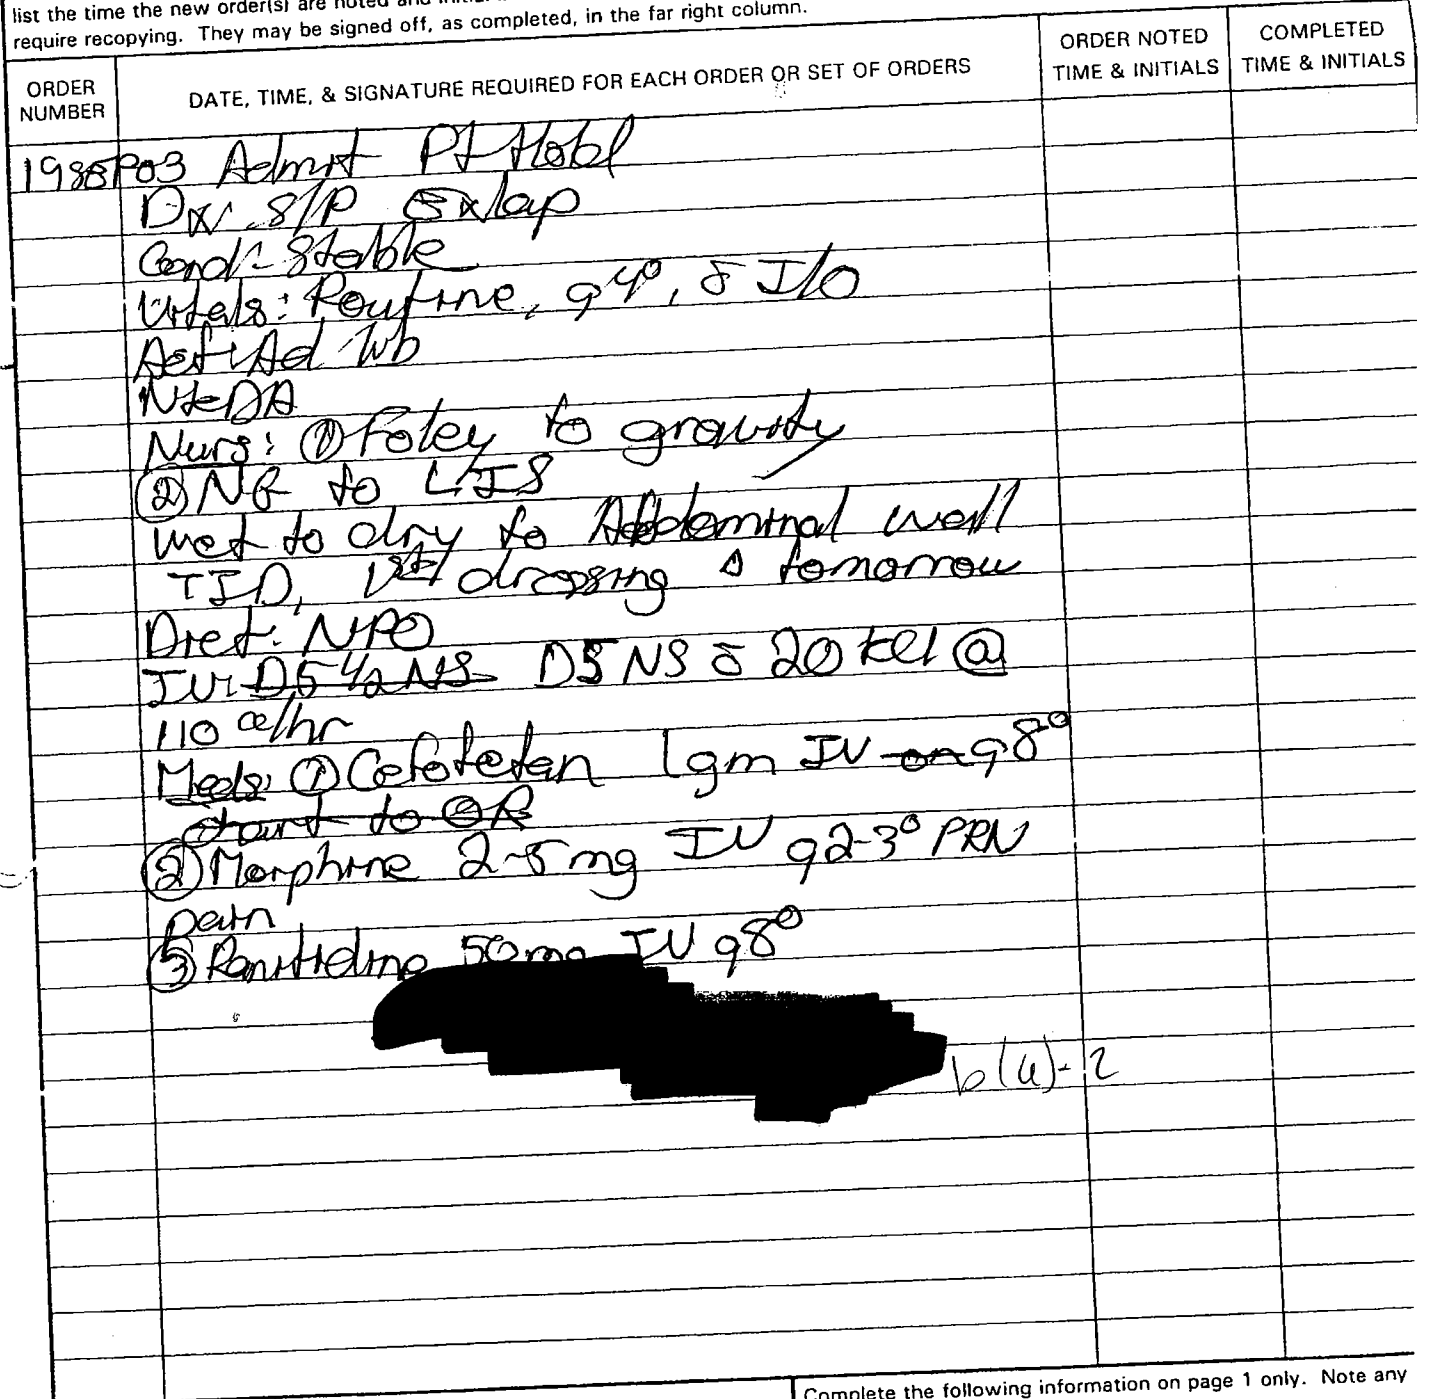 list the time the new order(s) are noted and
require recopying. They may be signed off, as completed, in the far right column.
ORDER NUMBER
DATE, TIME, & SIGNATURE REQUIRED FOR EACH ORDER OR SET OF ORDERS
ORDER NOTED TIME & INITIALS
COMPLETED TIME & INITIALS
Admit Pt
Dx S/P Exlap
Cond- Stable
Vitals: Routine, q4°, c̄ I/O
Act: Ad lib
NKDA
Nurs: ① Foley to gravity
② NG to LIS
wet to dry to Abdominal wall
TID, 1st dressing Δ tomorrow
Diet: NPO
IV: D5 1/2 NS D5 NS c̄ 20 kcl @
110 cc/hr
Meds: ① Cefotetan 1gm IV on q8°
to OR
② Morphine 2-5 mg IV q2-3° PRN
pain
③ Ranitidine 50mg IV q8°
b(6)-2
Complete the following information on page 1 only. Note any